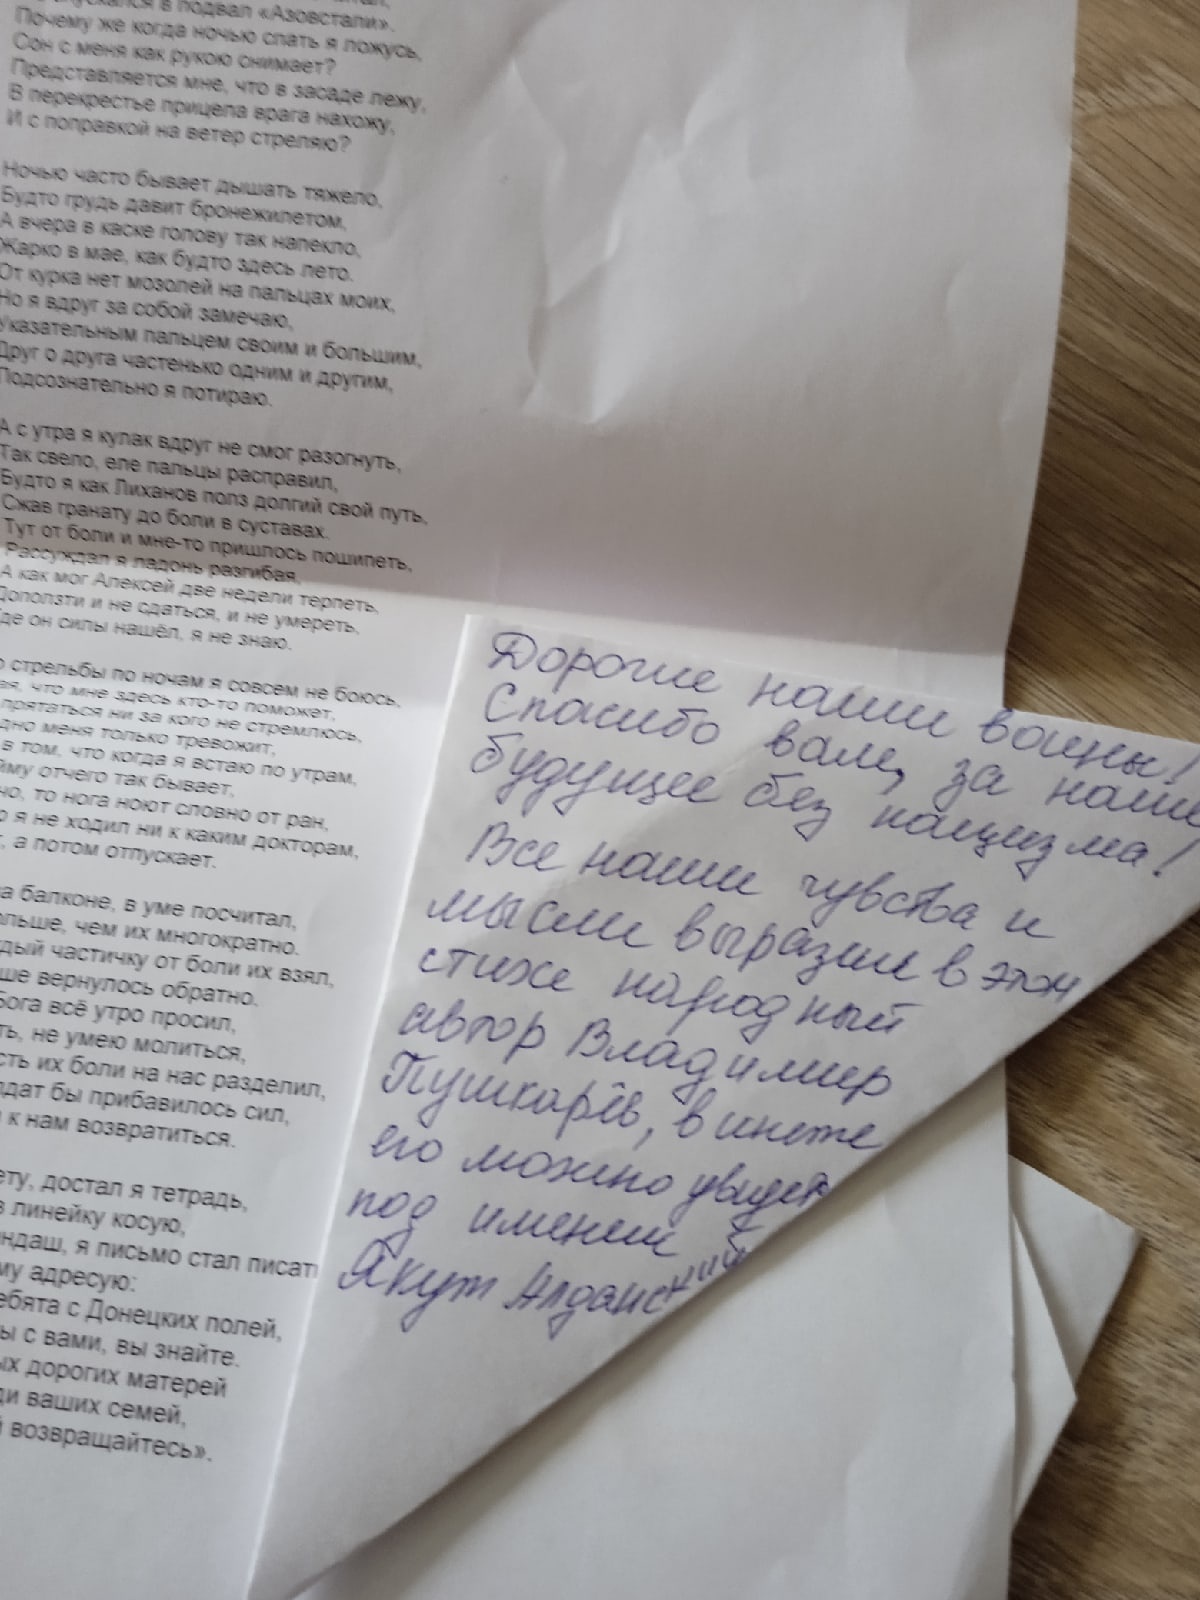 в подвал «Азовстали».
Почему же когда ночью спать я ложусь,
Сон с меня как рукою снимает?
Представляется мне, что в засаде лежу,
В перекрестье прицела врага нахожу,
И с поправкой на ветер стреляю?
Ночью часто бывает дышать тяжело,
Будто грудь давит бронежилетом,
А вчера в каске голову так напекло,
Жарко в мае, как будто здесь лето.
От курка нет мозолей на пальцах моих,
Но я вдруг за собой замечаю,
Указательным пальцем своим и большим,
Друг о друга частенько одним и другим,
Подсознательно я потираю.
А с утра я кулак вдруг не смог разогнуть,
Так свело, еле пальцы расправил,
Будто я как Лиханов полз долгий свой путь,
Сжав гранату до боли в суставах.
Тут от боли и мне-то пришлось пошипеть,
Рассуждал я ладонь разгибая,
А как мог Алексей две недели терпеть,
Доползти и не сдаться, и не умереть,
Где он силы нашёл, я не знаю.
стрельбы по ночам я совсем не боюсь,
что мне здесь кто-то поможет,
прятаться ни за кого не стремлюсь,
меня только тревожит,
в том, что когда я встаю по утрам,
отчего так бывает,
то нога ноют словно от ран,
я не ходил ни к каким докторам,
а потом отпускает.
балконе, в уме посчитал,
чем их многократно.
частичку от боли их взял,
вернулось обратно.
всё утро просил,
не умею молиться,
их боли на нас разделил,
бы прибавилось сил,
к нам возвратиться.
достал я тетрадь,
в линейку косую,
я письмо стал писать
адресую:
с Донецких полей,
с вами, вы знайте.
дорогих матерей
ваших семей,
возвращайтесь».
Дорогие наши воины!
Спасибо вам, за наше
будущее без нацизма!
Все наши чувства и
мысли выразил в этом
стихе народный
автор Владимир
Пушкарёв, в инете
его можно увидеть
под именем
Якут Алданский